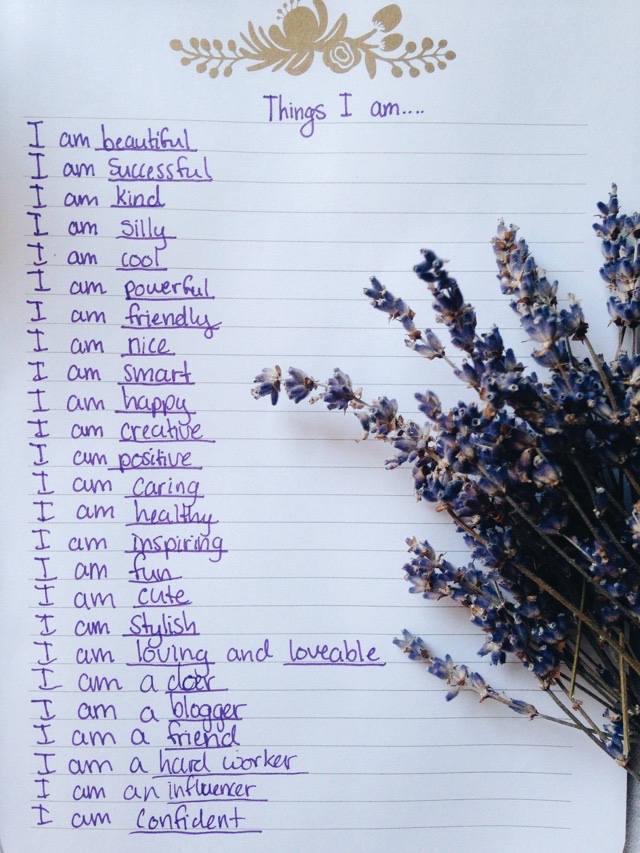 Things I am....
I am beautiful
I am Successful
I am kind
I am silly
I am cool
I am powerful
I am friendly
I am nice
I am smart
I am happy
I am creative
I am positive
I am caring
I am healthy
I am inspiring
I am fun
I am cute
I am stylish
I am loving and loveable
I am a doer
I am a blogger
I am a friend
I am a hard worker
I am an influencer
I am confident